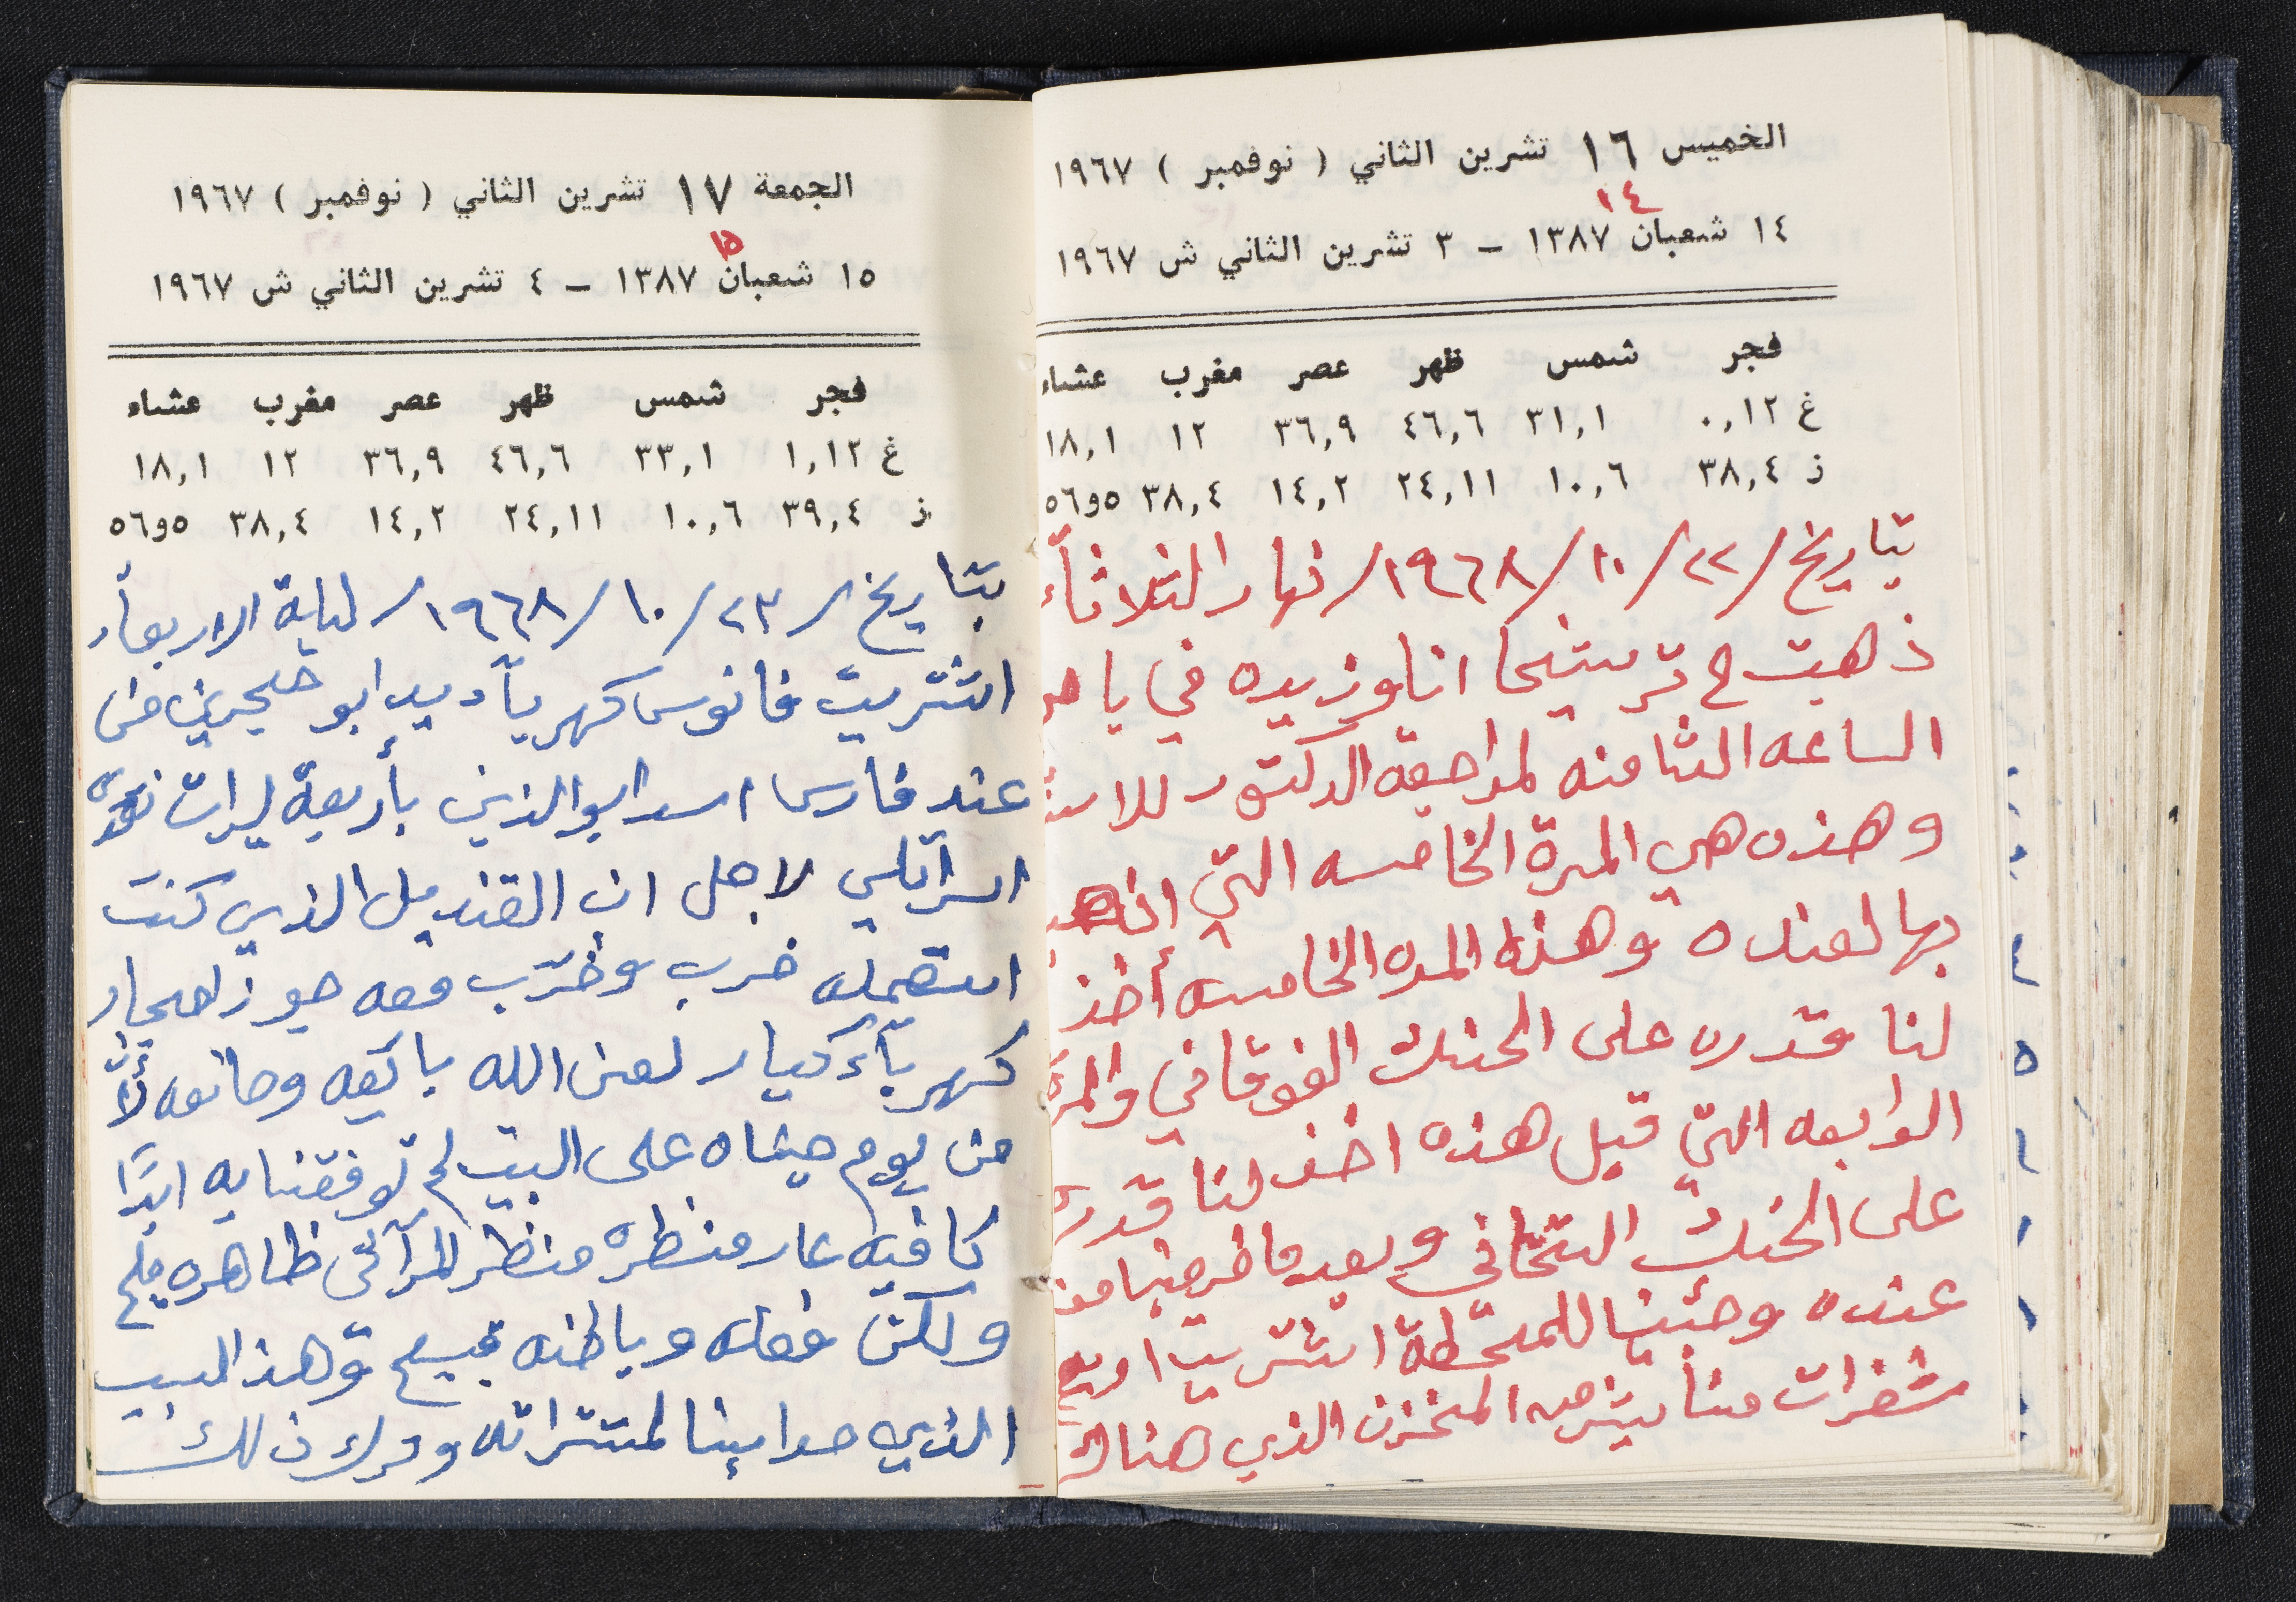 الخميس ١٦ تشرين الثاني ( نوفمبر ) ١٩٦٧
١٤
١٤ شعبان ١٣٨٧ – ٣ تشرين الثاني ش ١٩٦٧
فجر شمس ظهر عصر مغرب عشاء
غ ٠,١٢ ٣١,١ ٤٦,٦ ٣٦,٩ ١٢ ١٨,١
ز ٣٨,٤ ١٠,٦ ٢٤,١١ ١٤,٢ ٣٨,٤ ٥و٥٦
بتاريخ /٢٢/١٠/١٩٦٨/ نهار الثلاثاء
ذهبت الى ترشيحا انا وزيده في باص
الساعه الثامنه لمراجعة الدكتور
وهذه هي المرة الخامسه التي
بها لعنده وهذه المره الخامسه أخذ
لنا قدره على الحنك الفوقاني والمرة
الرابعه التي قبل هذه اخذ لنا قدره
على الحنك التحتاني وبعد ما خرجنا من
عنده وجئنا للمحطة اشتريت اربع
شفرات من المخزن الذي هناك
الجمعة ١٧ تشرين الثاني ( نوفمبر ) ١٩٦٧
١٥
١٥ شعبان ١٣٨٧ – ٤ تشرين الثاني ش ١٩٦٧
فجر شمس ظهر عصر مغرب عشاء
غ ١,١٢ ٣٣,١ ٤٦,٦ ٣٦,٩ ١٢ ١٨,١
ز ٣٩,٤ ١٠,٦ ٢٤,١١ ١٤,٢ ٣٨,٤ ٥و٥٦
بتاريخ /٢٣/١٠/١٩٦٨/ ليلة الاربعاء
اشتريت فانوس كهرباء يد ابو حجرين من
عند فارس اسد ابو الذين بأربعة ليرات
اسرائلي لاجل ان القنديل الذي كنت
استعمله خرب وخرّب معه جوز احجار
كهرباء كبار لعن الله بائعه وصانعه
من يوم جبناه على البيت لم توفقنا به ابدًا
كافيه عار منظره منظر للمرآئى ظاهره مليح
ولكن فعله وباطنه قبيح وهذا السبب
الذي صوابنا لمشتراته وترك ذلك